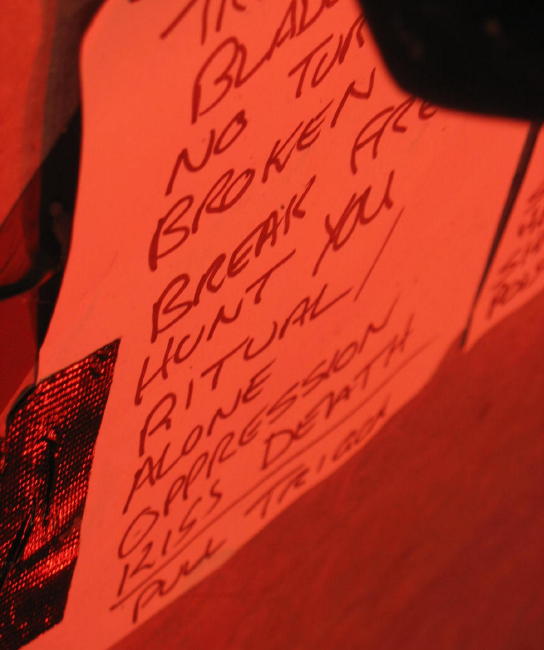 BLAD
NO TUR
BROKEN
BREAK ARE
HUNT YOU
RITUAL/
ALONE
OPPRESSION
KISS DEATH
PULL TRIGGER